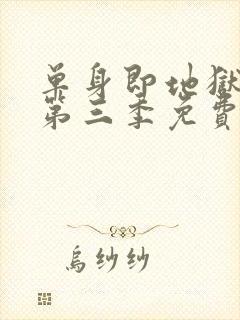 單身即地獄
第三季免費
烏紗紗